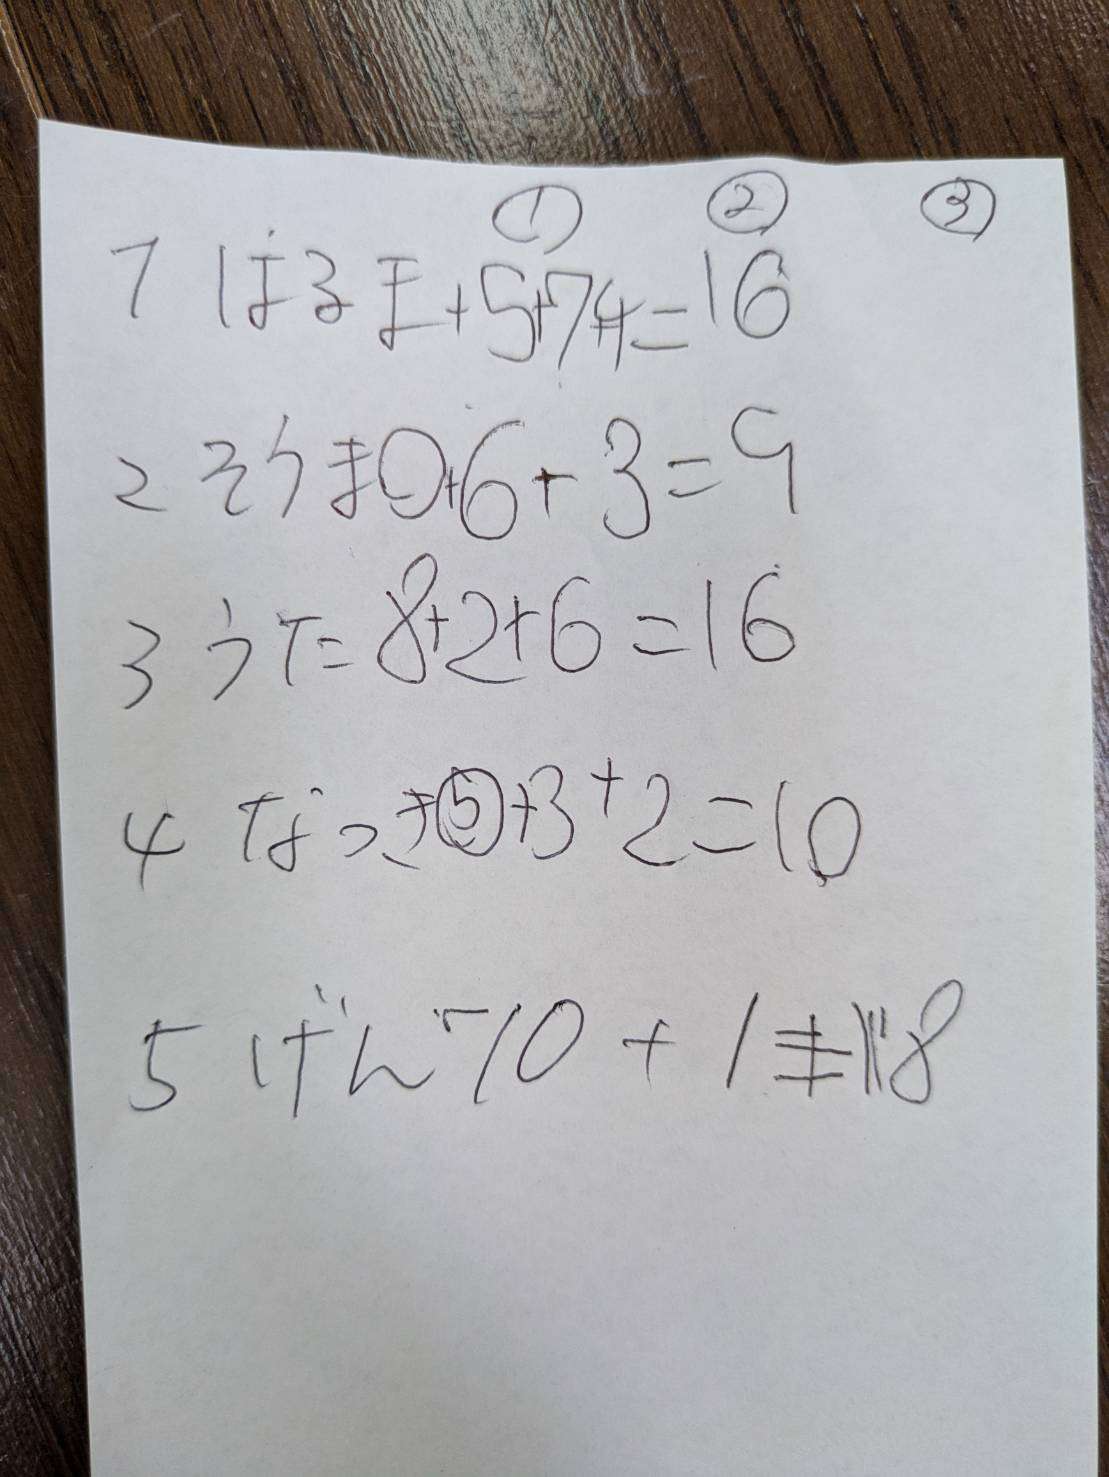 ① ② ③
1 はるま+5+7+4=16
2 そうま0+6+3=9
3 うた=8+2+6=16
4 なつき⑤+3+2=10
5 げんで10+1